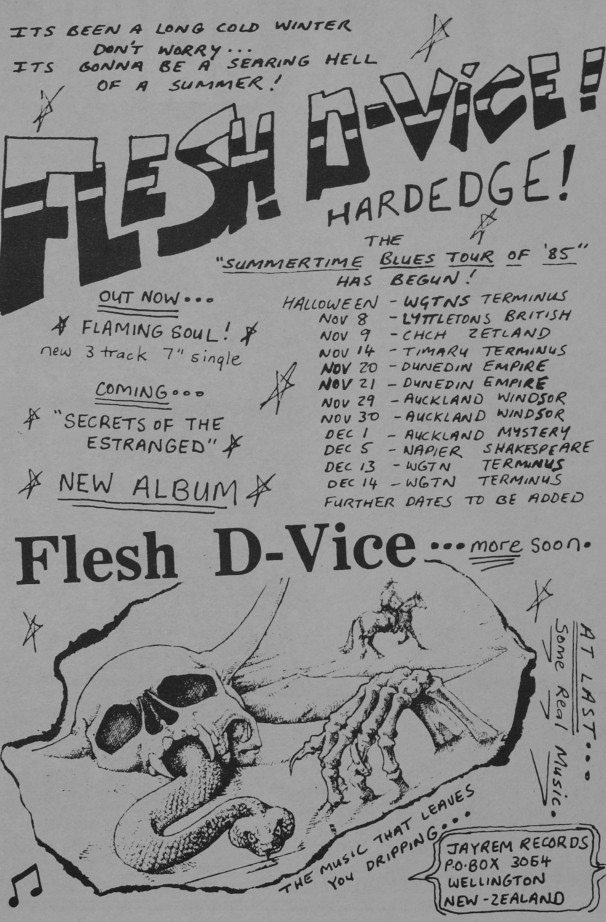 ITS BEEN A LONG COLD WINTER
DON'T WORRY...
ITS GONNA BE A SEARING HELL
OF A SUMMER!
FLESH D-VICE!
HARDEDGE!
THE
"SUMMERTIME BLUES TOUR OF '85"
HAS BEGUN!
HALLOWEEN - WGTNS TERMINUS
NOV 8 - LYTTLETONS BRITISH
NOV 9 - CHCH ZETLAND
NOV 14 - TIMARU TERMINUS
NOV 20 - DUNEDIN EMPIRE
NOV 21 - DUNEDIN EMPIRE
NOV 29 - AUCKLAND WINDSOR
NOV 30 - AUCKLAND WINDSOR
DEC 1 - AUCKLAND MYSTERY
DEC 5 - NAPIER SHAKESPEARE
DEC 13 - WGTN TERMINUS
DEC 14 - WGTN TERMINUS
FURTHER DATES TO BE ADDED
OUT NOW...
FLAMING SOUL!
new 3 track 7" single
COMING...
"SECRETS OF THE
ESTRANGED"
NEW ALBUM
Flesh D-Vice ... more soon.
AT LAST...
Some Real Music.
THE MUSIC THAT LEAVES
YOU DRIPPING...
JAYREM RECORDS
P.O.BOX 3054
WELLINGTON
NEW-ZEALAND